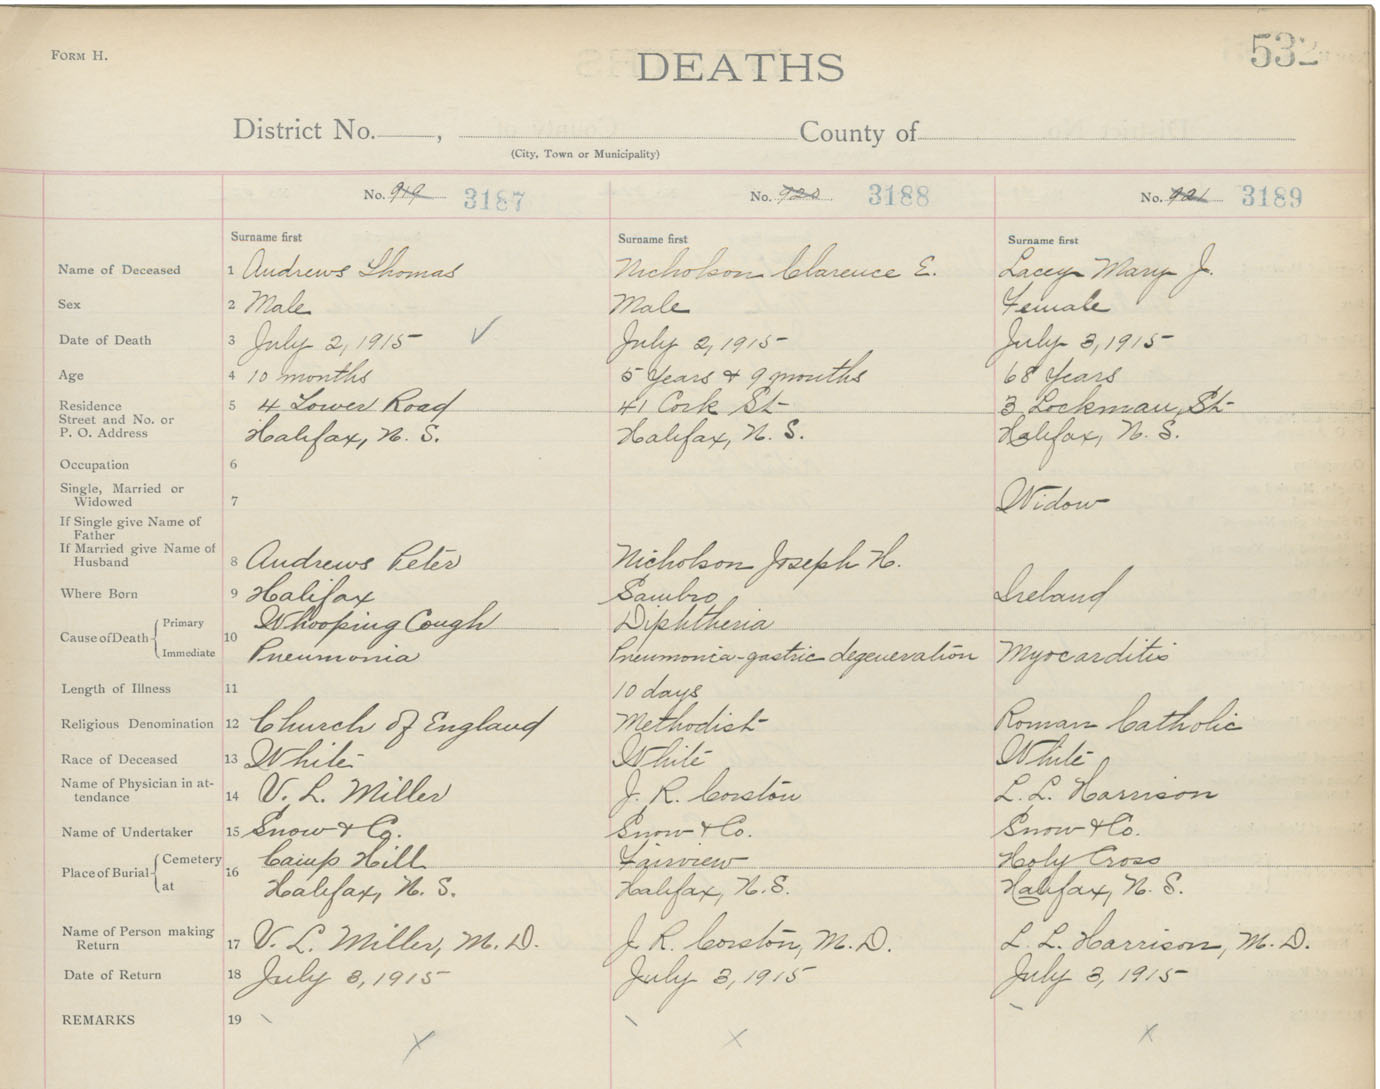 Form H.
DEATHS
532
District No. , County of
(City, Town or Municipality)
No. 919 3187 No. 920 3188 No. 921 3189
Surname first Surname first Surname first
Name of Deceased 1 Andrews Thomas Nicholson Clarence E. Lacey Mary J.
Sex 2 Male Male Female
Date of Death 3 July 2, 1915 July 2, 1915 July 3, 1915
Age 4 10 months 5 years & 9 months 68 years
Residence 5 4 Lower Road 41 Cork St 3 Lockman St
Street and No. or
P. O. Address Halifax, N. S. Halifax, N. S. Halifax, N. S.
Occupation 6
Single, Married or
Widowed 7 Widow
If Single give Name of
Father
If Married give Name of
Husband 8 Andrews Peter Nicholson Joseph H.
Where Born 9 Halifax Sambro Ireland
Cause of Death 10 Primary Whooping Cough Diphtheria
Immediate Pneumonia Pneumonia-gastric degeneration Myocarditis
Length of Illness 11 10 days
Religious Denomination 12 Church of England Methodist Roman Catholic
Race of Deceased 13 White White White
Name of Physician in at-
tendance 14 V. L. Miller J. R. Corston L. L. Harrison
Name of Undertaker 15 Snow & Co. Snow & Co. Snow & Co.
Place of Burial 16 Cemetery Camp Hill Fairview Holy Cross
at Halifax, N. S. Halifax, N. S. Halifax, N. S.
Name of Person making
Return 17 V. L. Miller, M. D. J. R. Corston, M. D. L. L. Harrison, M. D.
Date of Return 18 July 3, 1915 July 3, 1915 July 3, 1915
REMARKS 19